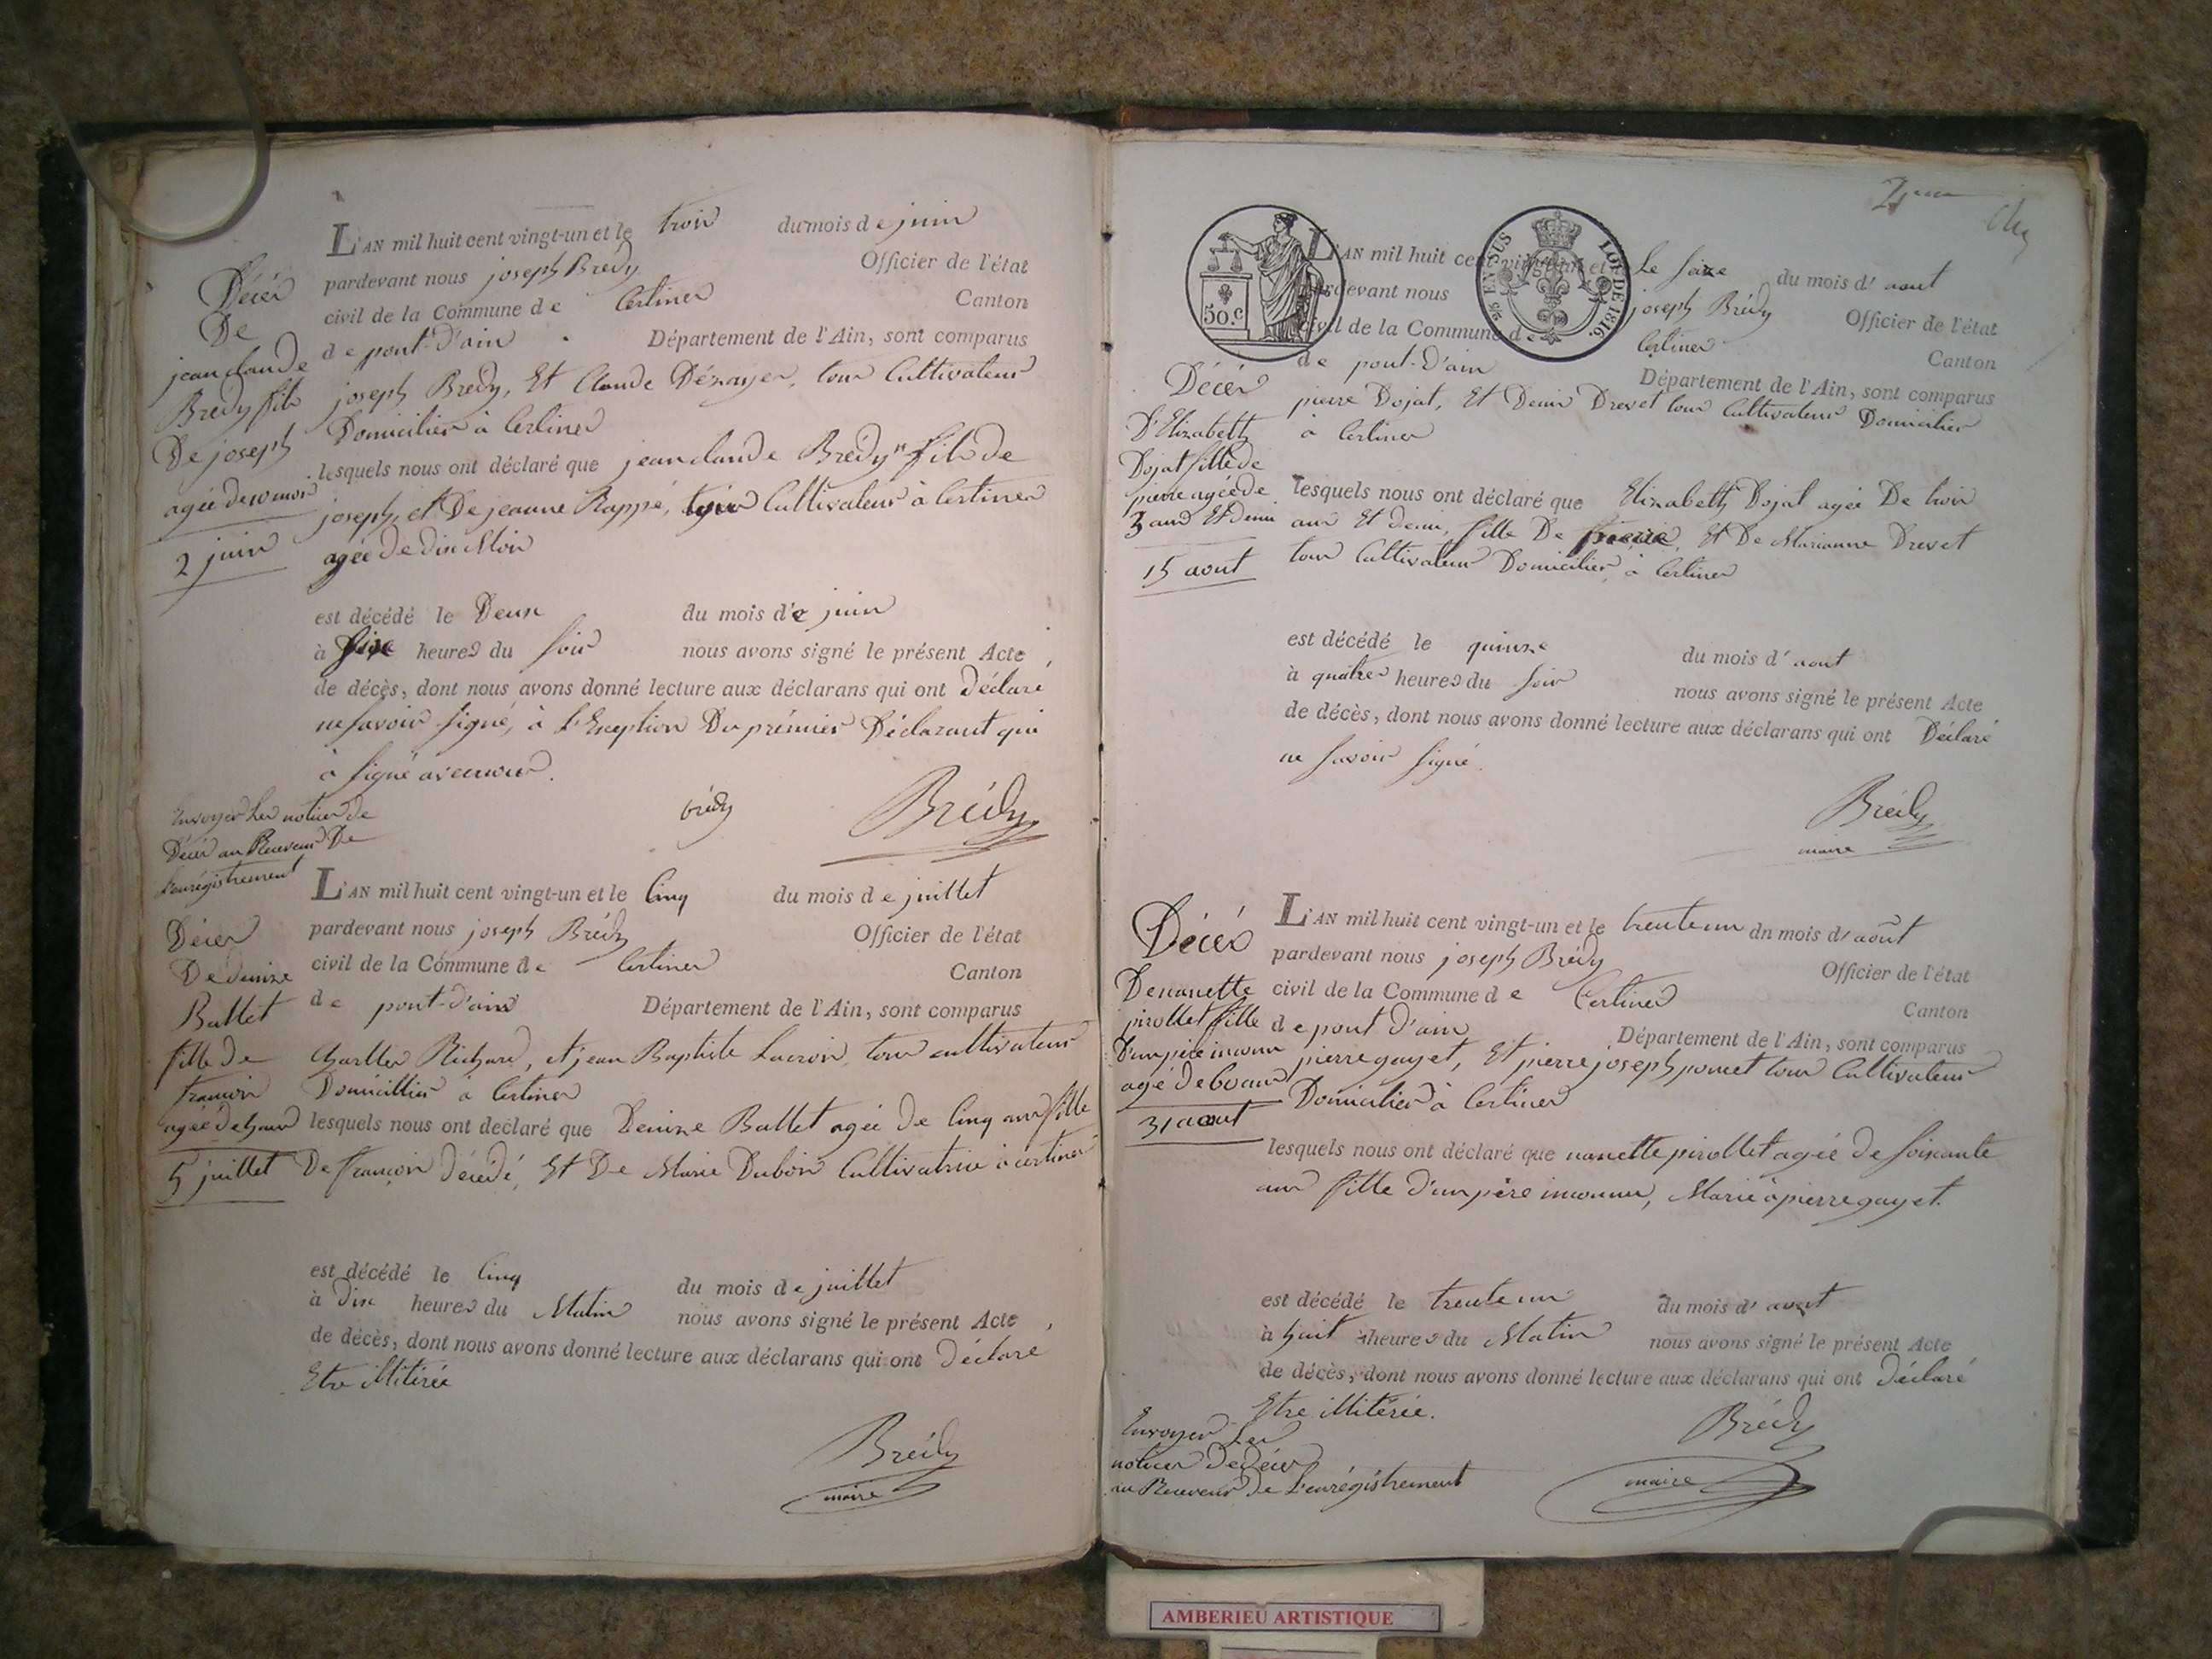 L'AN mil huit cent vingt-un et le trois du mois de juin
pardevant nous joseph Brédy Officier de l'état
civil de la Commune de Certines Canton
de pont-d'ain Département de l'Ain, sont comparus
joseph Brédy, Et Claude Dénayer, tous Cultivateurs
Domiciliés à Certines
lesquels nous ont déclaré que jean claude Brédy fils de
joseph, et De jeanne Rappé, Cultivateurs à Certines
agée de dix Mois
est décédé le Deux du mois de juin
à heures du soir nous avons signé le présent Acte
de décès, dont nous avons donné lecture aux déclarans qui ont Déclaré
ne savoir signé, à l'Exeption Du prémier Déclarant qui
à signé avec nous.
brédy Brédy
Décès
De
jean claude
Brédy fils
De joseph
agée de 10 mois
2 juin
Envoyer les notices de
Décès au Receveur De
l'enrégistrement
L'AN mil huit cent vingt-un et le Cinq du mois de juillet
pardevant nous joseph Brédy Officier de l'état
civil de la Commune de Certines Canton
de pont-d'ain Département de l'Ain, sont comparus
Charlles Richard, et jean Baptiste Lacroix, tous cultivateurs
Domicilliés à Certines
lesquels nous ont declaré que Denize Ballet agée de Cinq ans fille
De françois Décédé, Et De Marie Dubois Cultivatrice à certines
est décédé le Cinq du mois de juillet
à Dix heures du Matin nous avons signé le présent Acte
de décès, dont nous avons donné lecture aux déclarans qui ont Déclaré
Etre illitérée
Brédy
maire
Décès
De denize
Ballet
fille de
françois
agée de 5 ans
5 juillet
2
50.c
EN SUS
LOI DE 1816.
L'AN mil huit cent vingt-un et le seize du mois d'aout
pardevant nous joseph Brédy Officier de l'état
civil de la Commune de Certines Canton
de pont-D'ain Département de l'Ain, sont comparus
pierre Dojat, Et Denis Drevet tous Cultivateurs Domiciliés
à Certines
lesquels nous ont déclaré que Elizabeth Dojat agée De trois
ans Et demi, fille De pierre, Et De Marianne Drevet
tous Cultivateurs Domiciliés à Certines
est décédé le quinze du mois d'aout
à quatre heures du soir nous avons signé le présent Acte
de décès, dont nous avons donné lecture aux déclarans qui ont Déclaré
ne savoir signé.
Brédy
maire
Décès
D'Elizabeth
Dojat fille de
pierre agée de
3 ans Et demi
15 aout
L'AN mil huit cent vingt-un et le trente un du mois d'août
pardevant nous joseph Brédy Officier de l'état
civil de la Commune de Certines Canton
de pont D'ain Département de l'Ain, sont comparus
pierre gayet, Et pierre joseph poncet tous Cultivateurs
Domiciliés à Certines
lesquels nous ont déclaré que nanette pirollet agée de soixante
ans fille D'un père inconnu, Marié à pierre gayet.
est décédé le trente un du mois d'aout
à huit heures du Matin nous avons signé le présent Acte
de décès, dont nous avons donné lecture aux déclarans qui ont Déclaré
Etre illitérée.
Brédy
maire
Décès
De nanette
pirollet fille
D'un père inconnu
agé de 60 ans
31 aout
Envoyer Les
notices De Décès
au Receveur De L'enrégistrement
AMBERIEU ARTISTIQUE